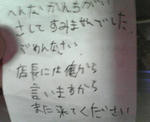 へんたいかんちがい
さしてすみませんでした
ごめんなさい
店長には俺から
言いますから
また来てください